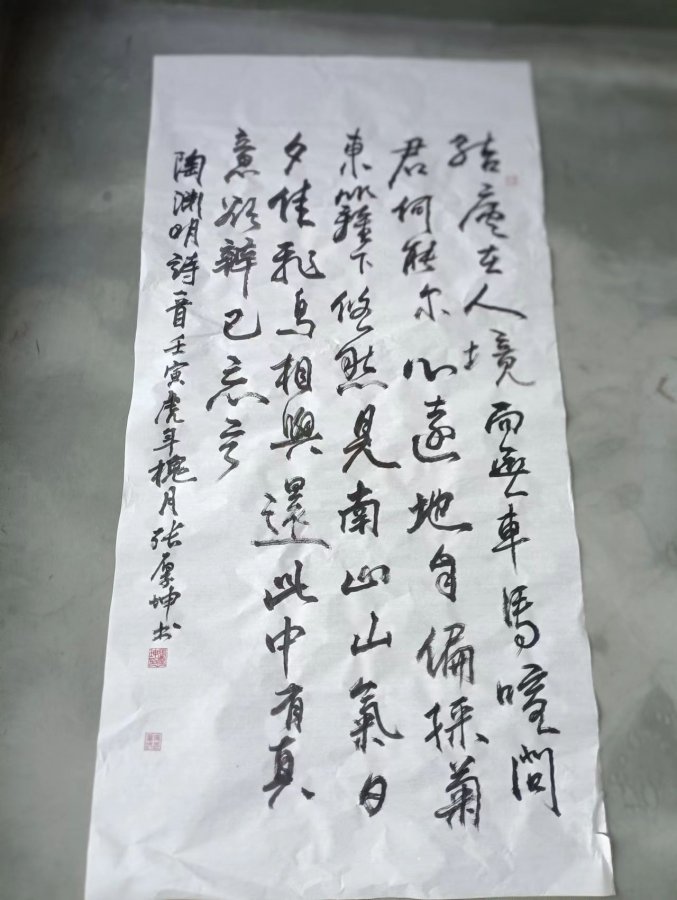 結廬在人境而無車馬喧問
君何能尔心遠地自偏採菊
東籬下悠然見南山山氣日
夕佳飛鳥相與還此中有真
意欲辨已忘言
陶渊明詩一首壬寅虎年槐月张厚坤书